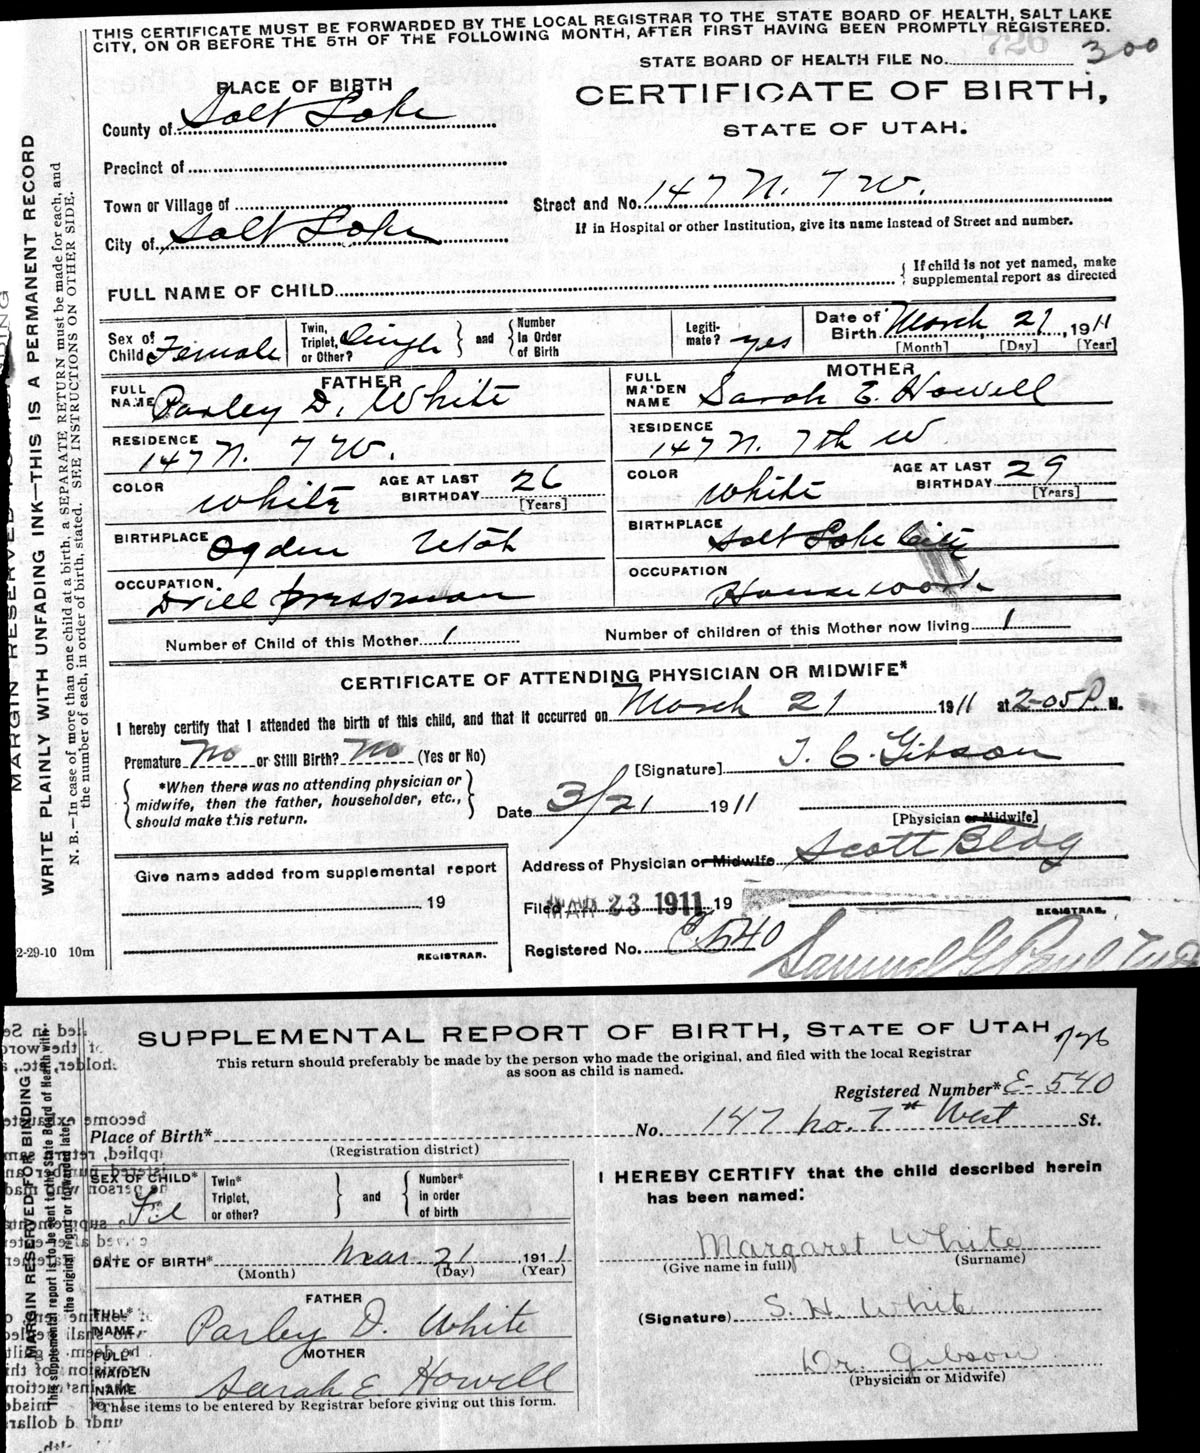 THIS CERTIFICATE MUST BE FORWARDED BY THE LOCAL REGISTRAR TO THE STATE BOARD OF HEALTH, SALT LAKE
CITY, ON OR BEFORE THE 5TH OF THE FOLLOWING MONTH, AFTER FIRST HAVING BEEN PROMPTLY REGISTERED.
726
STATE BOARD OF HEALTH FILE No. 300
PLACE OF BIRTH
CERTIFICATE OF BIRTH,
STATE OF UTAH.
County of Salt Lake
Precinct of
Town or Village of
Street and No. 147 N. 7 W.
City of Salt Lake
If in Hospital or other Institution, give its name instead of Street and number.
FULL NAME OF CHILD
{ If child is not yet named, make
supplemental report as directed
Sex of Child Female
Twin, Triplet, or Other? Single } and { Number In Order of Birth
Legitimate? yes
Date of Birth March 21, 1911
[Month] [Day] [Year]
FATHER
FULL NAME Parley D. White
MOTHER
FULL MAIDEN NAME Sarah E. Howell
RESIDENCE 147 N. 7 W.
RESIDENCE 147 N. 7th W
COLOR White AGE AT LAST BIRTHDAY 26 [Years]
COLOR White AGE AT LAST BIRTHDAY 29 [Years]
BIRTHPLACE Ogden Utah
BIRTHPLACE Salt Lake City
OCCUPATION Drill pressman
OCCUPATION Housework
Number of Child of this Mother 1
Number of children of this Mother now living 1
CERTIFICATE OF ATTENDING PHYSICIAN OR MIDWIFE*
I hereby certify that I attended the birth of this child, and that it occurred on March 21 1911 at 2-05 P. M.
Premature No or Still Birth? No (Yes or No)
[Signature] T. C. Gibson
{ *When there was no attending physician or
midwife, then the father, householder, etc.,
should make this return. }
Date 3/21 1911
[Physician or Midwife]
Address of Physician or Midwife Scott Bldg
Give name added from supplemental report
19
REGISTRAR.
Filed MAR 23 1911 19
REGISTRAR.
Registered No. E 540
2-29-10 10m
MARGIN RESERVED FOR BINDING
WRITE PLAINLY WITH UNFADING INK—THIS IS A PERMANENT RECORD
N. B.—In case of more than one child at a birth, a SEPARATE RETURN must be made for each, and
the number of each, in order of birth, stated. SEE INSTRUCTIONS ON OTHER SIDE.
SUPPLEMENTAL REPORT OF BIRTH, STATE OF UTAH
726
This return should preferably be made by the person who made the original, and filed with the local Registrar
as soon as child is named.
Registered Number* E-540
Place of Birth* No. 147 no. 7th West St.
(Registration district)
SEX OF CHILD*
Twin* Triplet, or other? } and { Number* in order of birth
I HEREBY CERTIFY that the child described herein
has been named:
DATE OF BIRTH* Mar 21 1911
(Month) (Day) (Year)
Margaret White
(Give name in full) (Surname)
FATHER
FULL* NAME Parley D. White
(Signature) S. H. White
MOTHER
FULL* MAIDEN NAME Sarah E. Howell
Dr. Gibson
(Physician or Midwife)
*These items to be entered by Registrar before giving out this form.
MARGIN RESERVED FOR BINDING
This supplemental report is to be sent to the State Board of Health with
the original report or forwarded later.